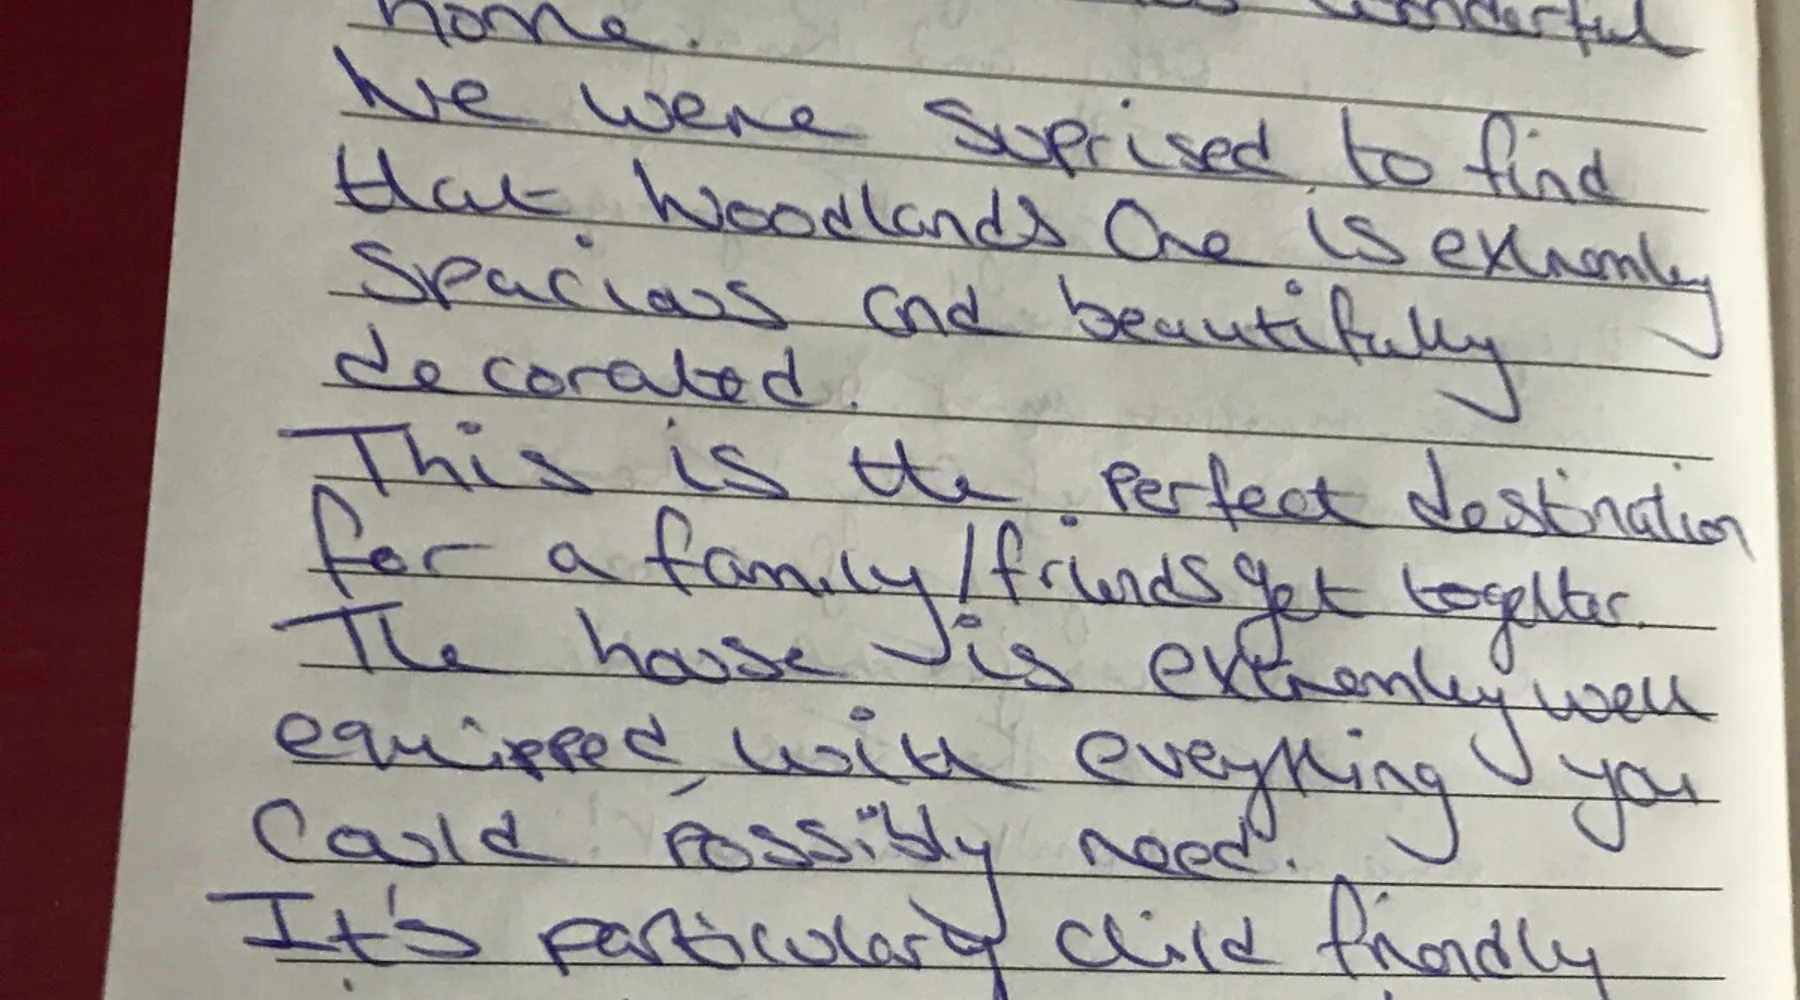 wonderful
home.
We were suprised to find
that Woodlands One is extremly
spacious and beautifully
decorated.
This is the perfect destination
for a family/friends get together.
The house is extremly well
equipped, with eveything you
could possibly need.
It's particulary child friendly